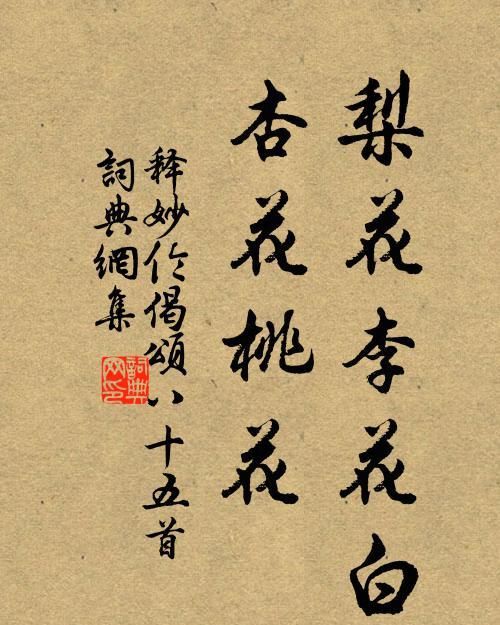 梨花李花白
杏花桃花
释妙伦偈頌八十五首
詞典網集
詞典網印